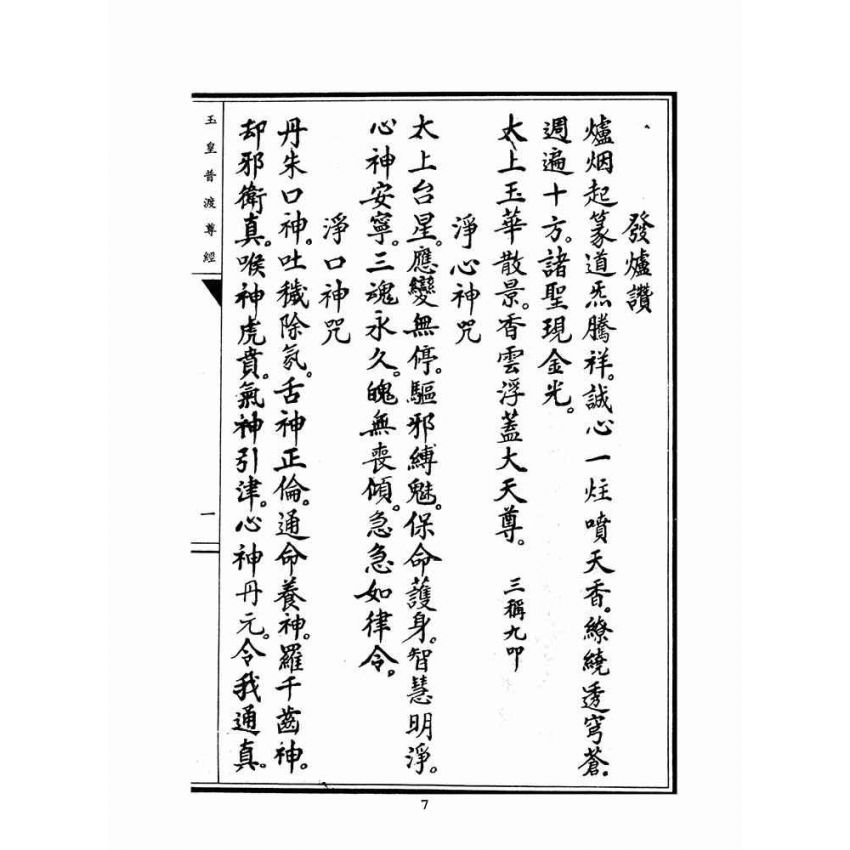 發爐讚
爐烟起篆道炁騰祥。誠心一炷噴天香。繚繞透穹蒼。
週遍十方。諸聖現金光。
太上玉華散景。香雲浮蓋大天尊。 三稱九叩
淨心神咒
太上台星。應變無停。驅邪縛魅。保命護身。智慧明淨。
心神安寧。三魂永久。魄無喪傾。急急如律令。
淨口神咒
丹朱口神。吐穢除氛。舌神正倫。通命養神。羅千齒神。
却邪衛真。喉神虎賁。氣神引津。心神丹元。令我通真。
玉皇普渡尊經
一
7